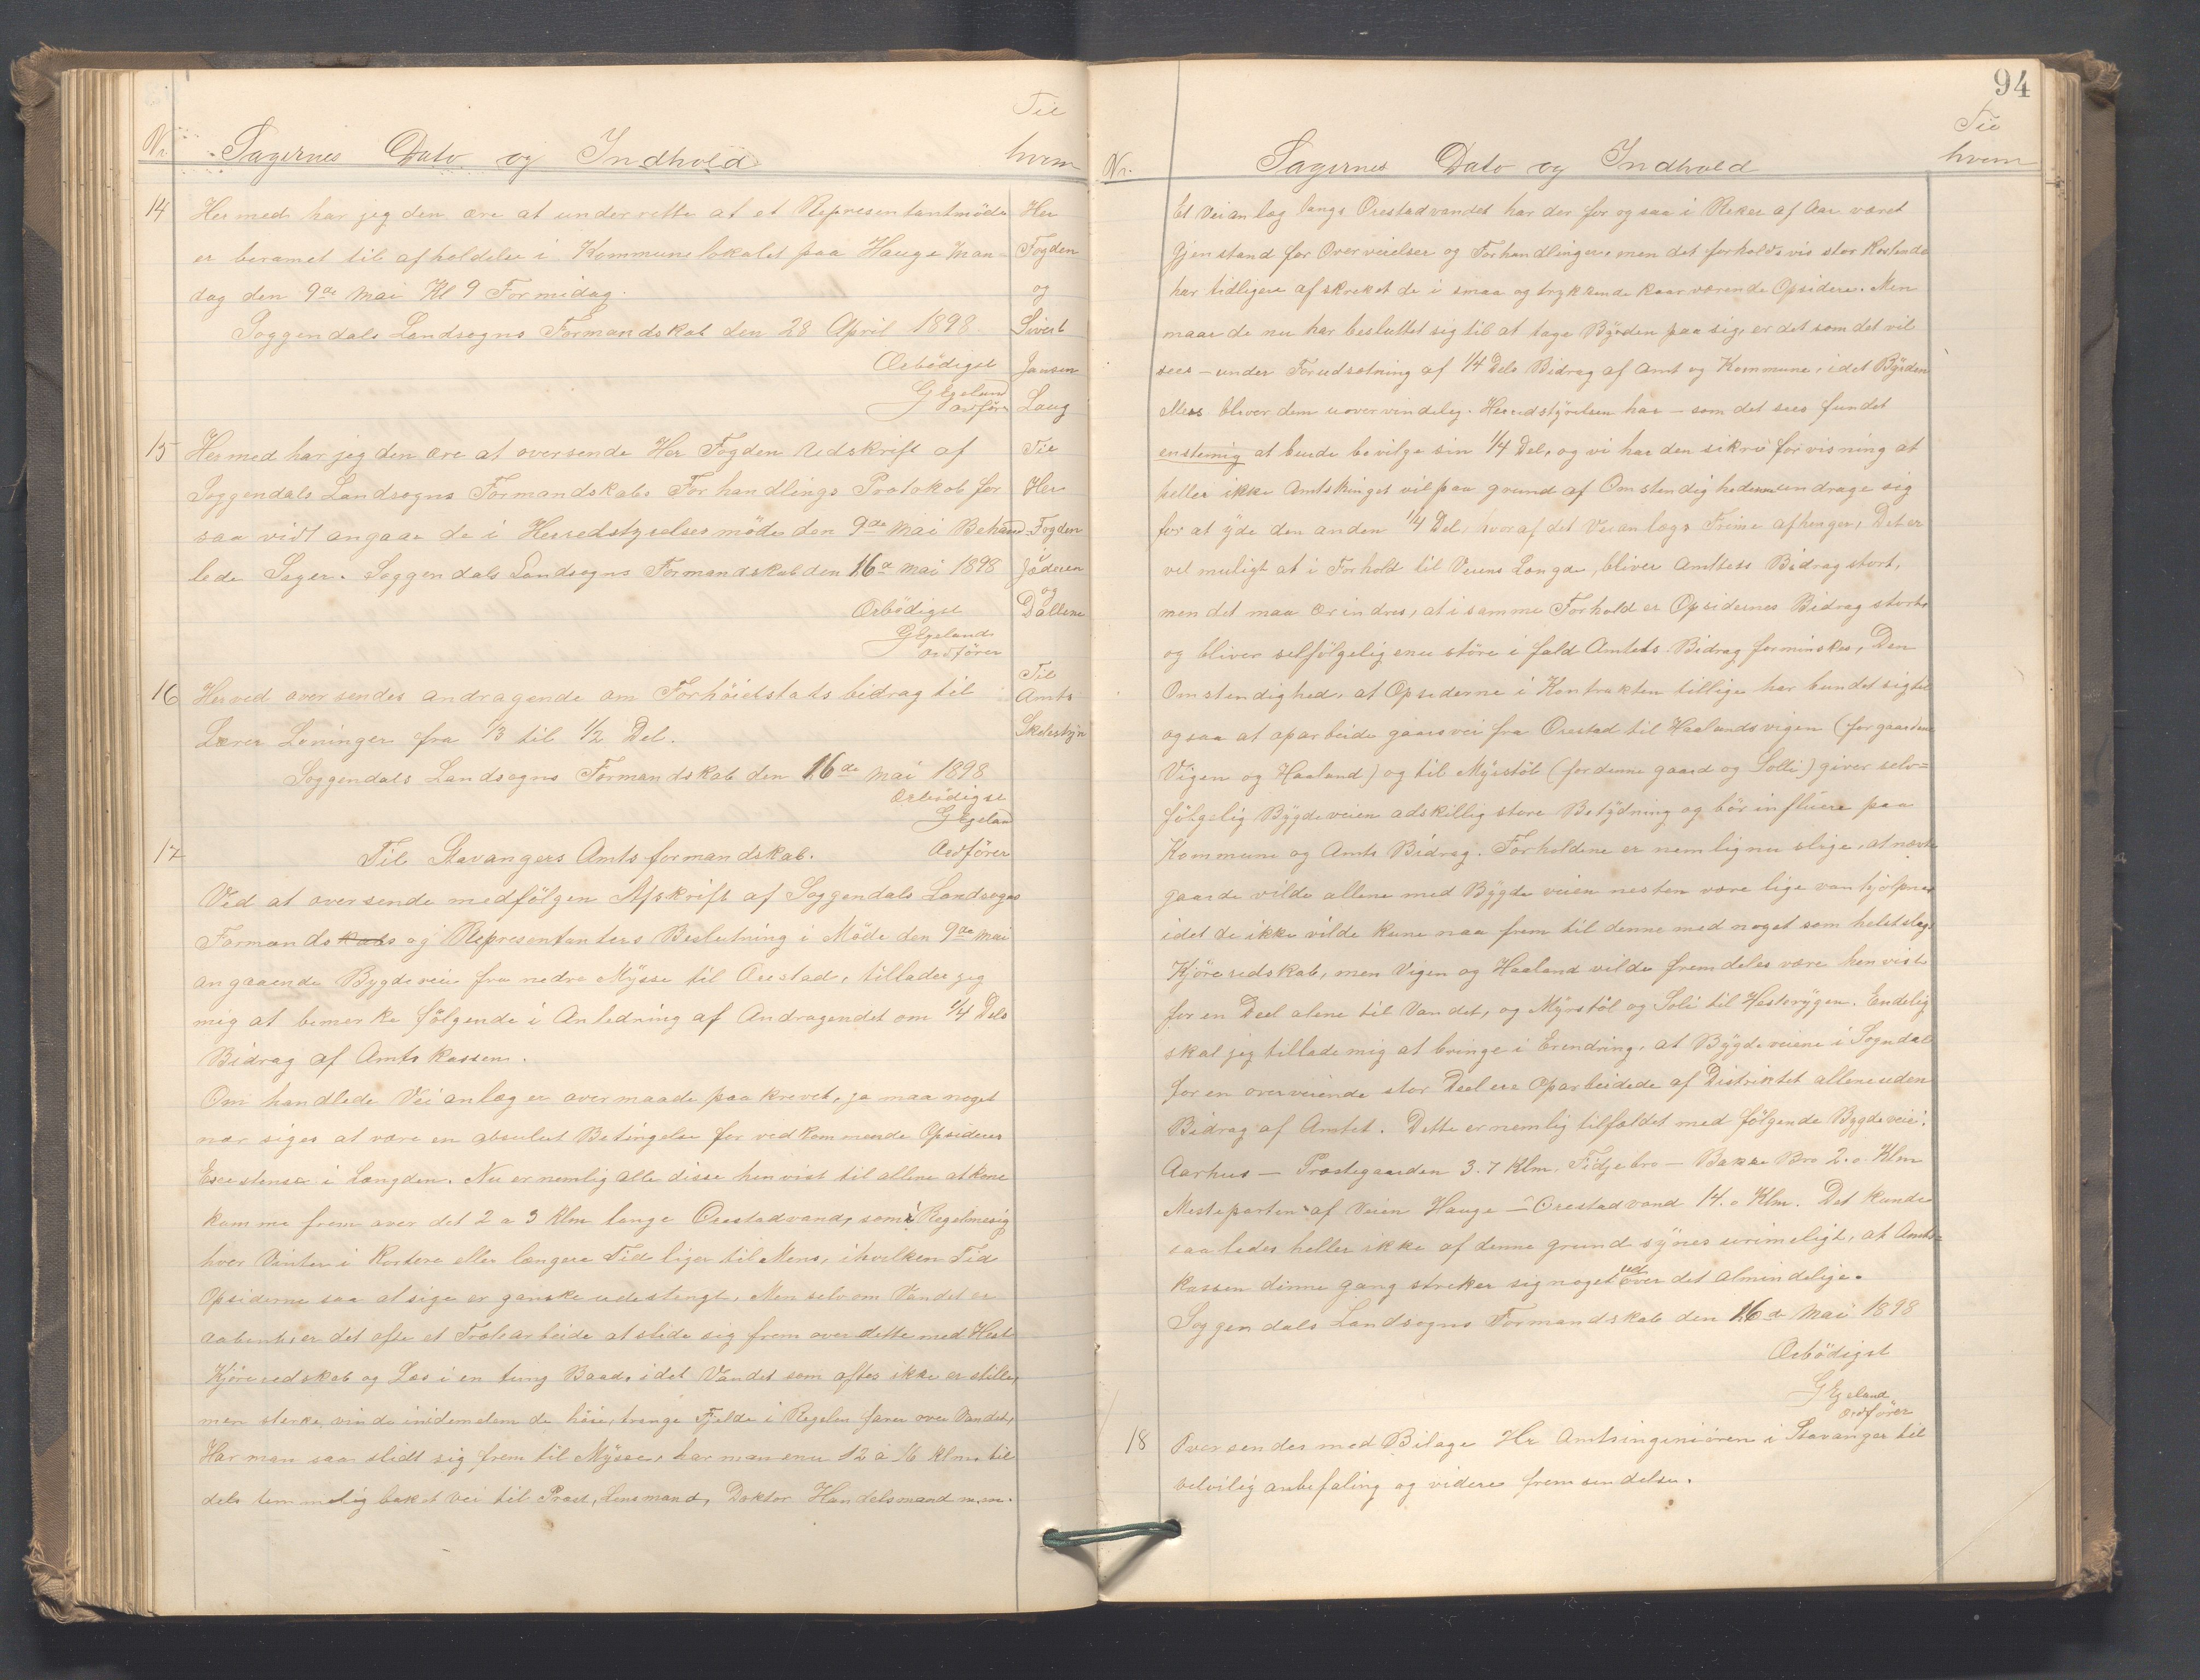 Til
Nr. Sagernes Dato og Indhold hvem
14 Hermed har jeg den ære at underrette at et Representantmöde Her
er beramet til afholdelse i Kommunelokalet paa Hauge Man- Fogden
dag den 9de Mai Kl 9 Formidag. og
Soggendals Landsogns Formandskab den 28 April 1898 Sivert
Ærbödigst Jansen
GEgeland Laug
ordförer
15 Hermed har jeg den ære at oversende Her Fogden Udskrift af Til
Soggendals Landsogns Formandskabs Forhandlings Protokol for Her
saa vidt angaar de i Herredstyrelsesmöde den 9de Mai Behand- Fogden
lede Sager. Soggendals Landsogns Formandskab den 16de Mai 1898 i Jæderen
Ærbödigst og Dallene
GEgeland
ordförer
Til
16 Herved oversendes andragende om Forhöietstatsbidrag til Amts
Lærer Löninger fra 1/3 til 1/2 Del. Skolestyr
Soggendals Landsogns Formandskab den 16de Mai 1898
Ærbödigst
GEgeland
17 Til Stavangers Amtsformandskab. Ordförer
Ved at oversende medfölgen Afskrift af Soggendals Landsogns
Formandskabs og Representanters Beslutning i Möde den 9de Mai
angaaende Bygdeveie fra nedre Mysse til Orestad, tillader jeg
mig at bemerke fölgende i Anledning af Andragendet om 1/4 Dels
Bidrag af Amtskassen.
Omhandlede Veianlæg er overmaade paakrevet, ja maa noget
nær siges at være en absolut Betingelse for vedkommende Opsideres
Exsistense i Længden. Nu er nemlig alle disse henvist til allene at kune
komme frem over det 2 a 3 Klm lange Orestadvand, som i Regelmesig
hver Vinter i Kortere eller længere Tid liger til Mens, i hvilken Tid
Opsiderne saa at sige er ganske udestengt. Men selv om Vandet er
aabent, er det ofte et Trælarbeide at slide sig frem over dette med Hest
Kjöreredskab og Læs i en tung Baad, idet Vandet som oftes ikke er stille,
men sterke vinde inidemelem de höie, trenge Fjelde i Regelen farer over Vandet,
Har man saa slidt sig frem til Mysse, har man enu 12 á 16 Klm. til
dels temmelig baket Vei til Præst, Lensmand, Doktor Handelsmand m.m.
94
Til
Nr. Sagernes Dato og Indhold hvem
Et Veianlæg langs Orestadvandet har der for ogsaa i Reker af Aar været
Gjenstand for Overveielser og Forhandlinger, men det forholdsvis stor Kostende
har tidligere afskreket de i smaa og trykkende kaar værende Opsidere. Men
naar de nu har besluttet sig til at tage Byrden paa sig, er det som det vil
sees – under Forudsætning af 1/4 Dels Bidrag af Amt og Kommune, idet Byrden
ellers bliver dem uovervindelig. Herredstyrelsen har – som det sees fundet
enstemig at burde bevilge sin 1/4 Del, og vi har den sikre forvisning at
heller ikke Amtsthinget vil paa grund af Omstendighederne undrage sig
for at yde den anden 1/4 Del, hvoraf det Veianlægs Frime afhenger, Det er
vel muligt at i Forhold til Veiens Længde, bliver Amttets Bidrag stort,
men det maa ærindres, at i samme Forhold er Opsidernes Bidrag stort
og bliver selfölgelig enu störe i fald Amtets Bidrag forminskes, Den
Omstendighed, at Opsiderne i Kontrakten tillige har bundet sig til
ogsaa at oparbeide gaarsvei fra Orestad til Haalandsvigen (for gaardene
Vigen og Haaland) og til Myrstöl (for denne gaard og Solli) giver selv-
fölgelig Bygdeveien adskillig störe Betydning og bör influere paa
Kommune og Amts Bidrag. Forholdene er nemlig nu slige, at nævte
gaarde vilde allene med Bygdeveien nesten være lige vanhjolpne
idet de ikke vilde kune naa frem til denne med noget som helst slags
Kjöreredskab, men Vigen og Haaland vilde fremdeles være henvist
for en Deel alene til Vandet, og Myrstöl og Soli til Hesterygen. Endelig
skal jeg tillade mig at bringe i Erendring, at Bygdeveiene i Sogndal
for en overveiende stor Deel ere Oparbeidede af Distriktet allene uden
Bidrag af Amtet. Dette er nemlig tilfældet med fölgende Bygdeveie:
Aarhus – Præstegaarden 3.7 Klm, Fidje bro – Bakke Bro 2.0 Klm
Mesteparten af Veien Hauge – Orestadvand 14.0 Klm. Det kunde
saaledes heller ikke af denne grund synes urimeligt, at Amts-
kassen dinne gang streker sig noget ud over det almindelige.
Soggendals Landsogns Formandskab den 16de Mai 1898
Ærbödigst
GEgeland
ordförer
18 Oversendes med Bilage Hr Amtsingeniören i Stavanger til
velvilig anbefaling og videre fremsendelse.